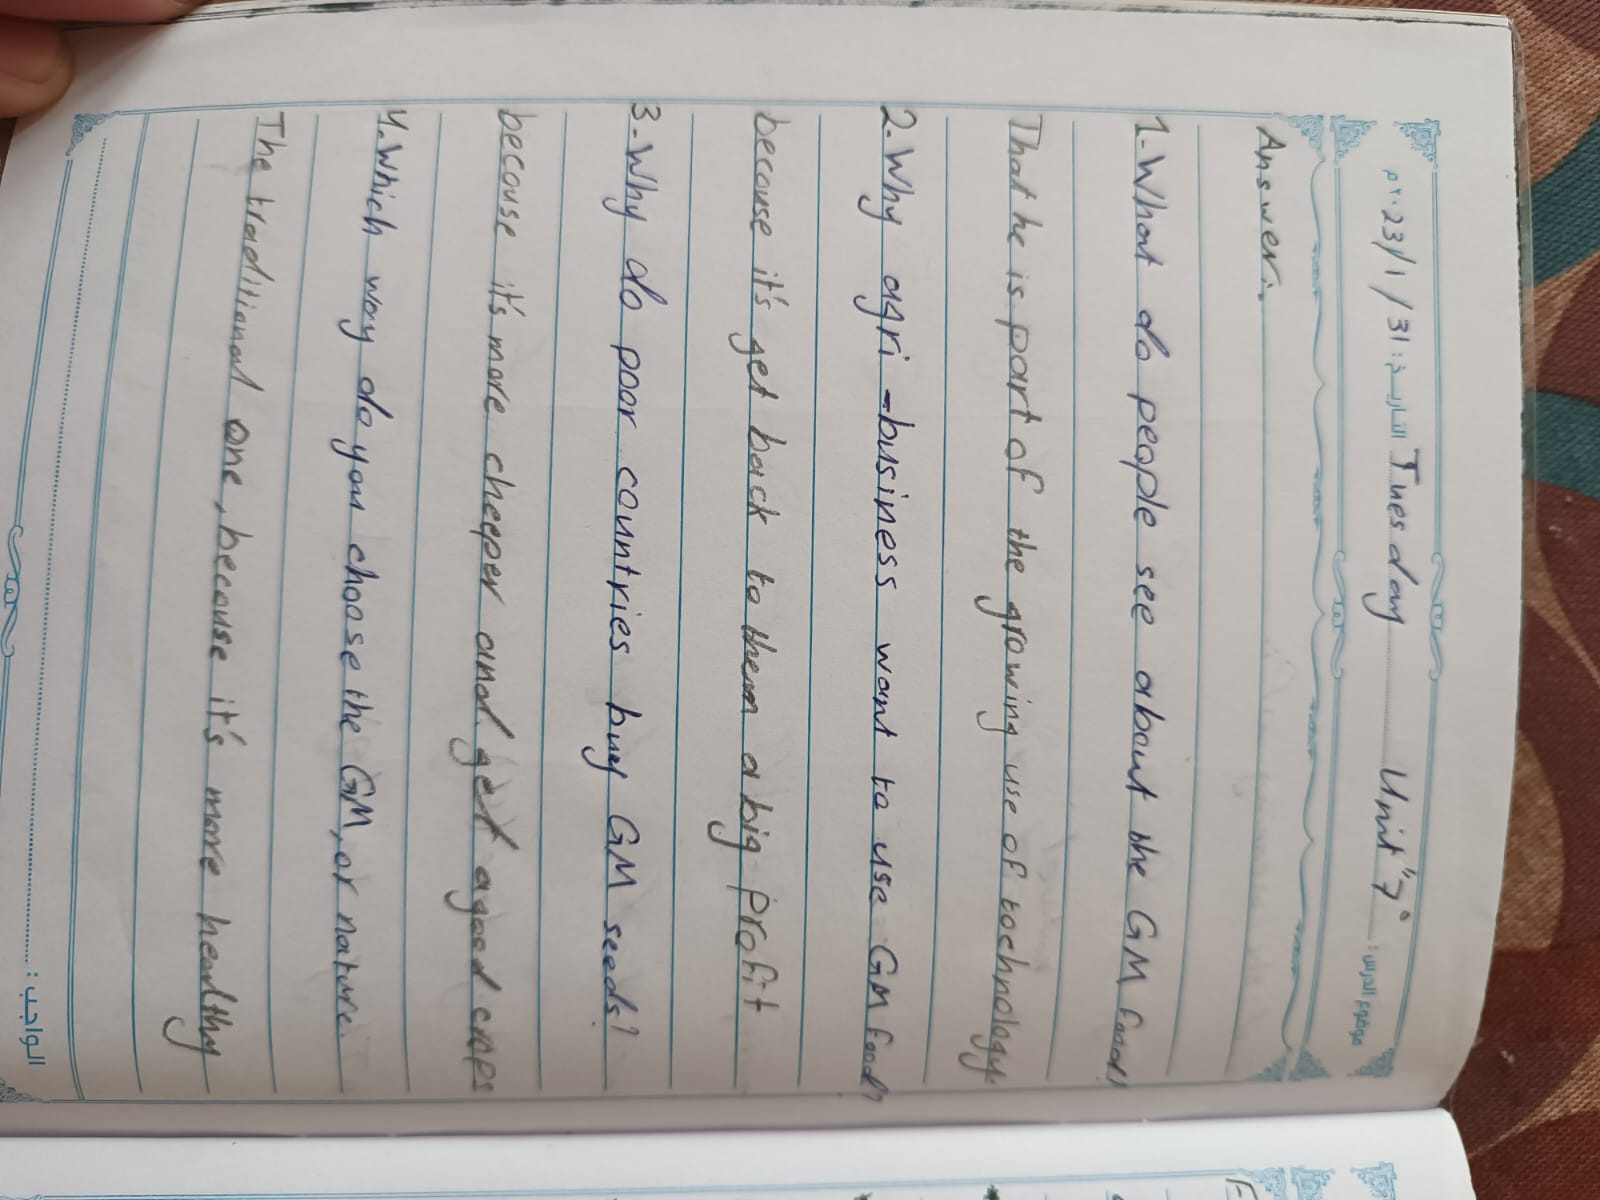 موضوع الدرس: Unit "7" Tuesday التاريخ: 31 / 1 / 23٢٠م
Answer:-
1-What do people see about the GM food?
That he is part of the growing use of toechnology.
2-Why agri-business want to use GM food?
because it's get back to them a big profit
3-Why do poor countries buy GM seeds?
because it's more cheeper and get agood crops
4-Which way do you choose the GM, or nature.
The traditional one, because it's more healthy
الواجب: